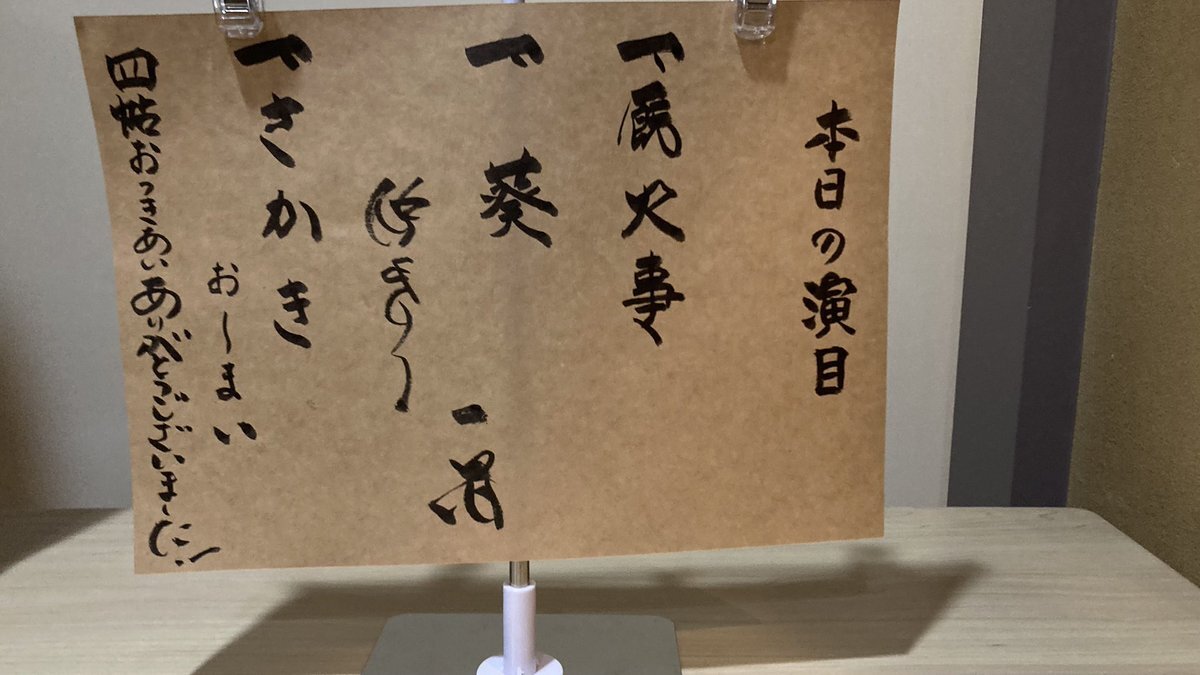 本日の演目
一、厩火事
一、葵
一、さかき
おしまい
四帖おつきあいありがとうございました